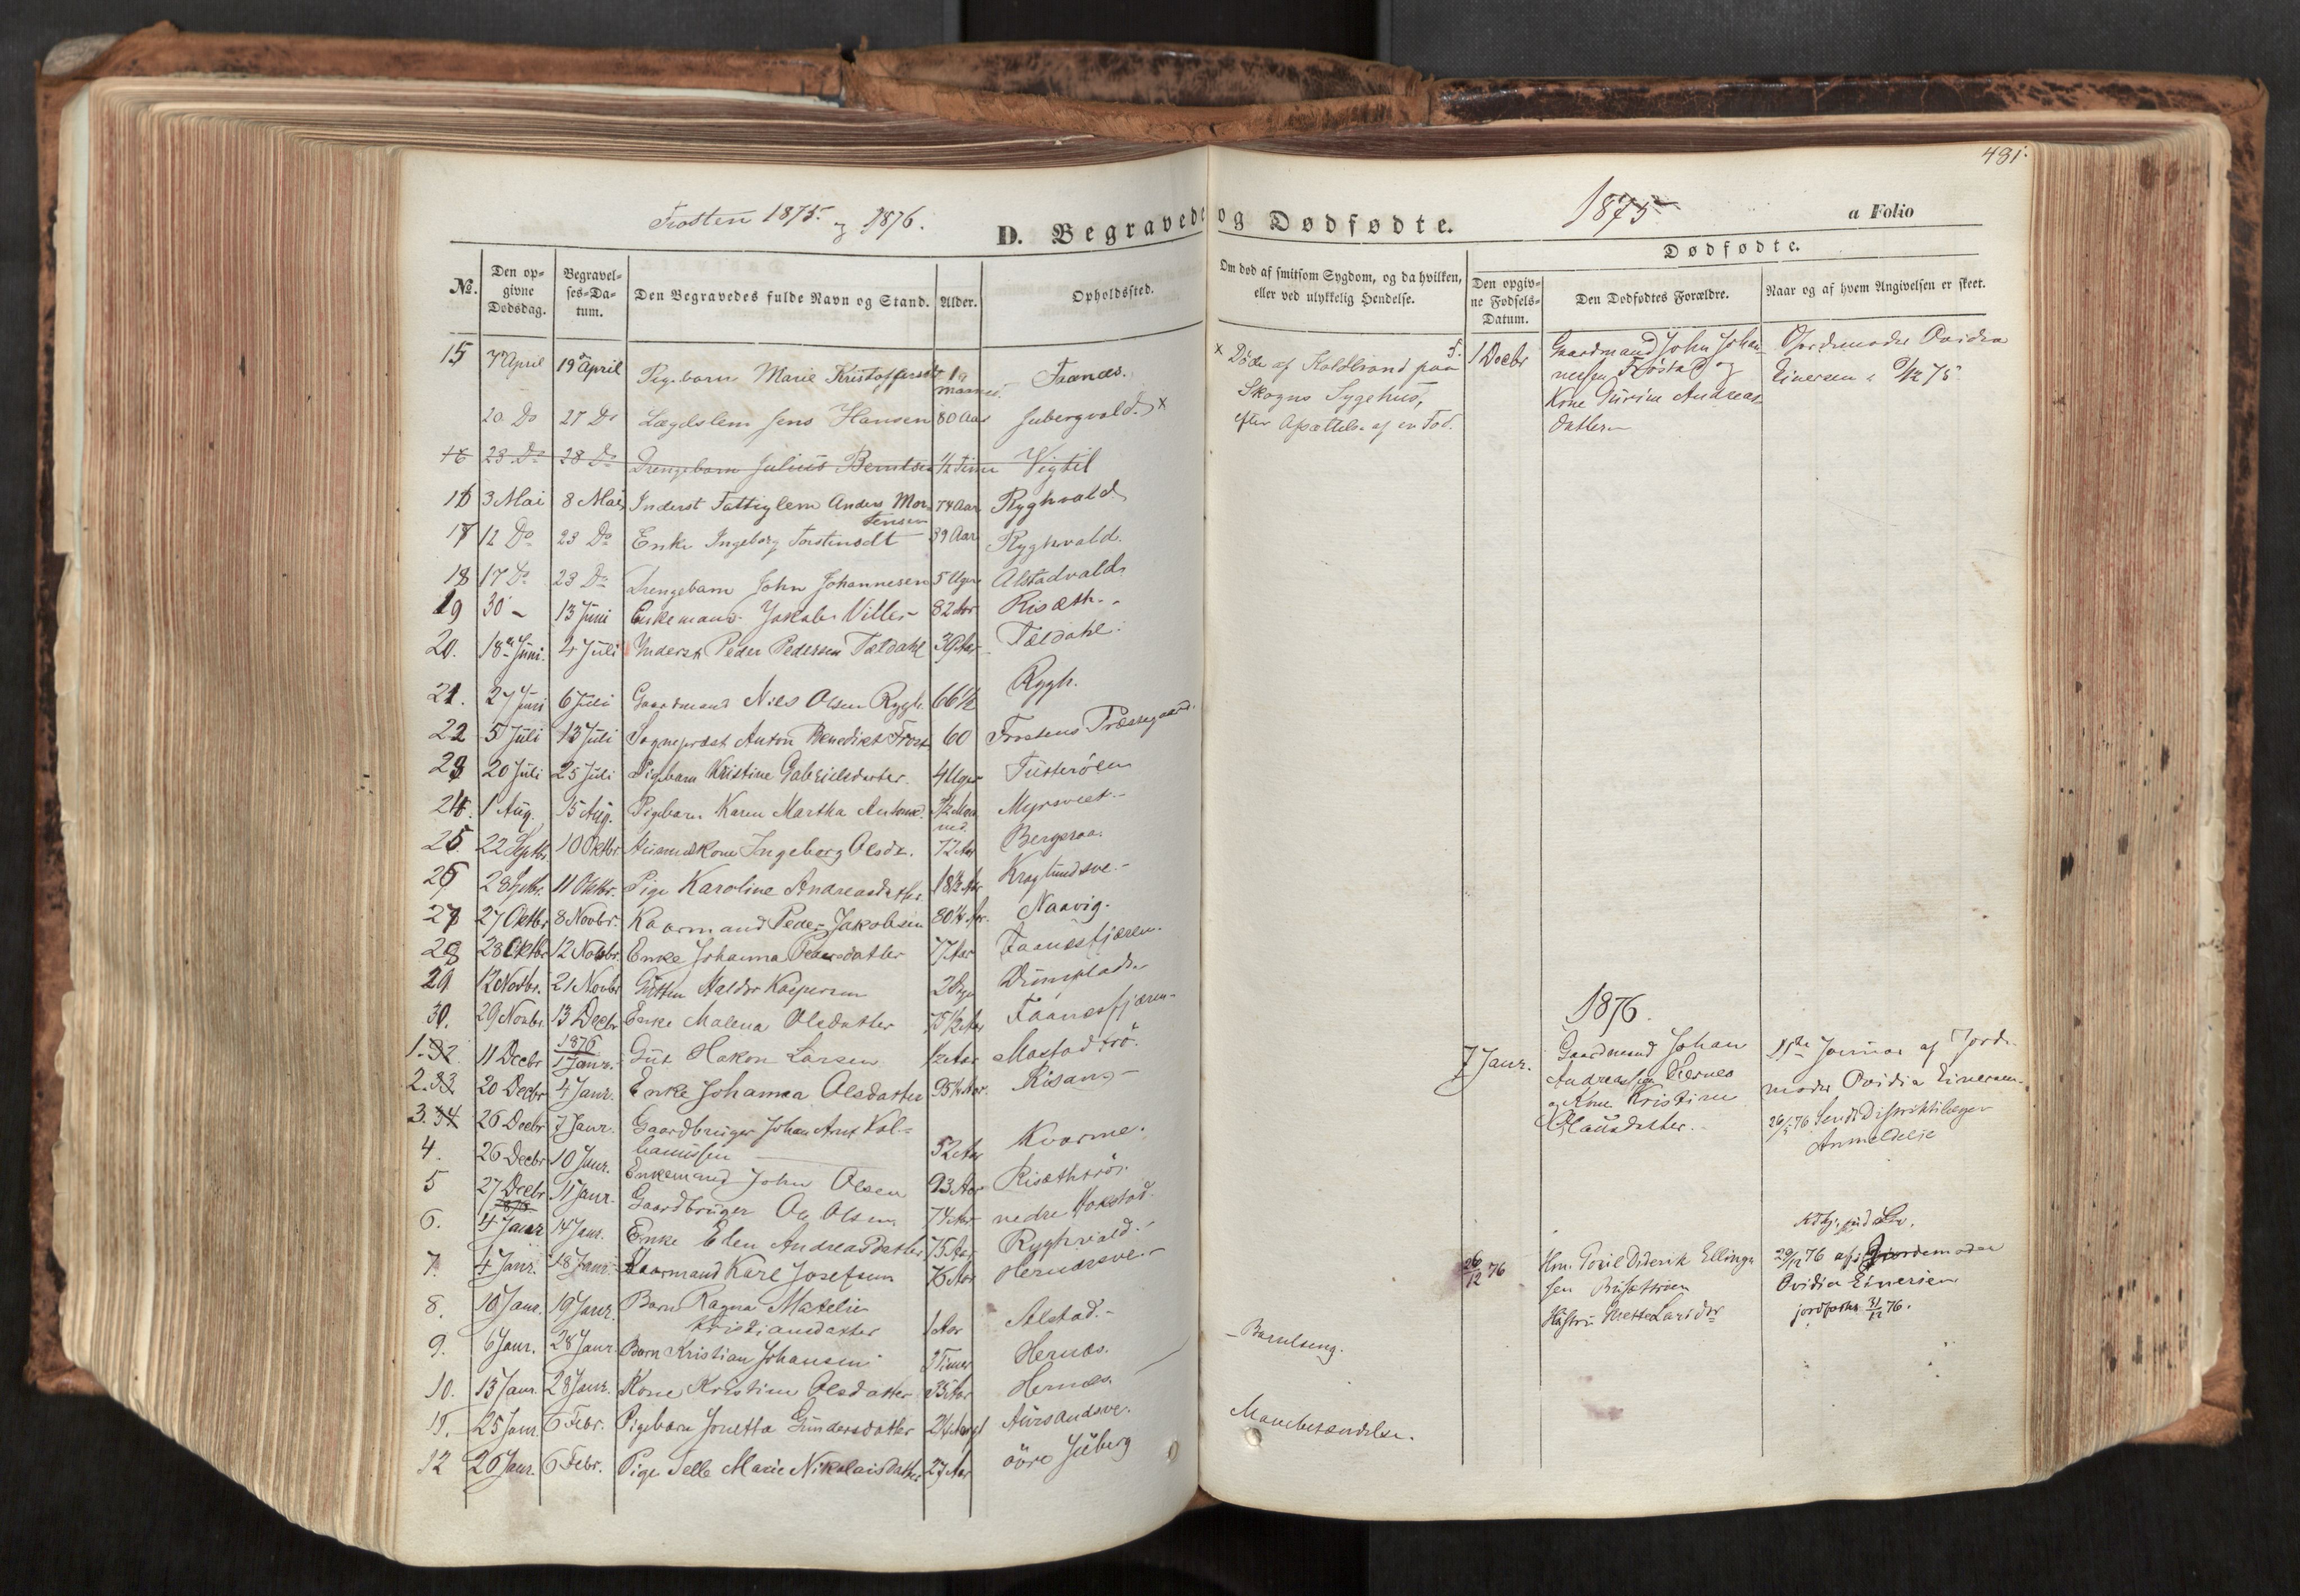 Frosten 1875. og 1876.
D. Begravede
№.
Den opgivne Dødsdag.
Begravelses-Datum.
Den Begravedes fulde Navn og Stand.
Alder.
Opholdssted.
15 7 April 19 April Pigebarn Marie Kristoffersdt 1 Maaned. Faanæs.
20 Do 27 Do Lægdslem Jens Hansen 80 Aar Jubergvald. x
16 23 Do 28 Do Drengebarn Julius Berntsen 1/2 Time Vigtil
16 3 Mai 8 Mai Inderst Fattiglem Anders Mor-
tensen 74 Aar Ryghvald
17 12 Do 23 Do Enke Ingeborg Torstensdt 89 Aar Ryghvald.
18 17 Do 23 Do Drengebarn John Johannesen 5 Uger Alstadvald
19 30 - 13 Juni Enkemand Jakob Villes 82 Aar Risæth.
20. 18 Juni. 4 Juli Inderst Peder Pedersen Tældahl 39 Aar Tældahl.
21. 27 Juni 6 Juli Gaardmand Nils Olsen Rygh 66 1/2 Rygh.
22 5 Juli 13 Juli Sognepræst Anton Benedikt Frost 60 Frostens Præstegaard.
23 20 Juli 25 Juli Pigebarn Kristine Gabrielsdatter. 4 Uger
24. 1 Aug. 15 Aug. Pigebarn Karen Martha Antonsd.
25 22 Septbr 10 Oktbr Huusmdskone Ingeborg Olsdr. 72 Aar
26 11 Oktbr. Pige Karoline Andreasdatter
27 27 Oktbr 8 Novbr. Kaarmand Peder Jakobsen 80 1/2 Aar. Naavig.
28 28 Oktbr 12 Novbr. Enke Johanna Pedersdatter 77 Aar Faanesfjæren.
29 12 Novbr. 21 Novbr Gutten Haldor Kaspersen
30. 29 Novbr. 13 Decbr Enke Malena Olsdatter 75 1/2 Aar Faanesfjæren
1. 32 11 Decbr 1876 1 Janr. Gut Hakon Larsen 1/2 Aar Mostadtrø.
2. 33 20 Decbr 4 Janr. Enke Johanna Olsdatter 95 1/2 Aar. Risan
3. 34 26 Decbr 7 Janr. Gaardbruger Johan Arnt Kol-
banussen 52 Aar Kvarme.
4. 26 Decbr 10 Janr. Enkemand John Olsen 93 Aar Risæthtrø.
5 27 Decbr 11 Janr. Gaardbruger Ole Olsen 74 Aar nedre Hokstad.
6. 1876 4 Janr 14 Janr. Enke Elen Andreasdatter 75 Aar Ryghvald.
7. 4 Janr. 18 Janr. Kaarmand Karl Josefsen 76 Aar Hernæsve.
8. 10 Janr. 19 Janr. Barn Ragna Matelie
Kristiansdatter 1 Aar Alstad.
9. 6 Janr. 28 Janr. Barn Kristian Johansen 3 Timer Hernæs.
10. 13 Janr. 28 Janr. Kone Kristine Olsdatter 35 Aar Hernæs
11. 25 Janr. 6 Febr. Pigebarn Jonetta Gundersdatter Aursandsve.
12 26 Janr. 6 Febr. Pige Selle Marie Nikolaisdatter 27 Aar øvre Juberg
og Dødfødte.
1875
a Folio
481.
Om død af smitsom Sygdom, og da hvilken,
eller ved ulykkelig Hendelse.
Dødfødte.
Den opgivne Fødsels-Datum.
Den Dødfødtes Forældre.
Naar og af hvem Angivelsen er skeet.
x Døde af Koldbrand paa
Skogns Sygehus,
efter Afsættelse af en Fod.
5. 1 Decbr
Gaardmand John Johan-
nesen Frøstad og
Kone Gurine Andreas-
datter
Gjordemoder Ovidia
Einersen 75
1876.
7 Janr.
Gaardmand Johan
Andreassen Hernes
og Kone Kristine
Olausdatter.
Januar af Jorde-
moder Ovidia Einersen.
26/1 76 Sendt Distriktslægen
Anmeldelse
26/12 76
Hm. Toril Diderik Ellings-
sen
Hustru Mette Larsdr
29/12 76 af Gjordemoder
Ovidia Einersen
jordfæstet 31/12 76.
- Barselseng.
Mavebetændelse.